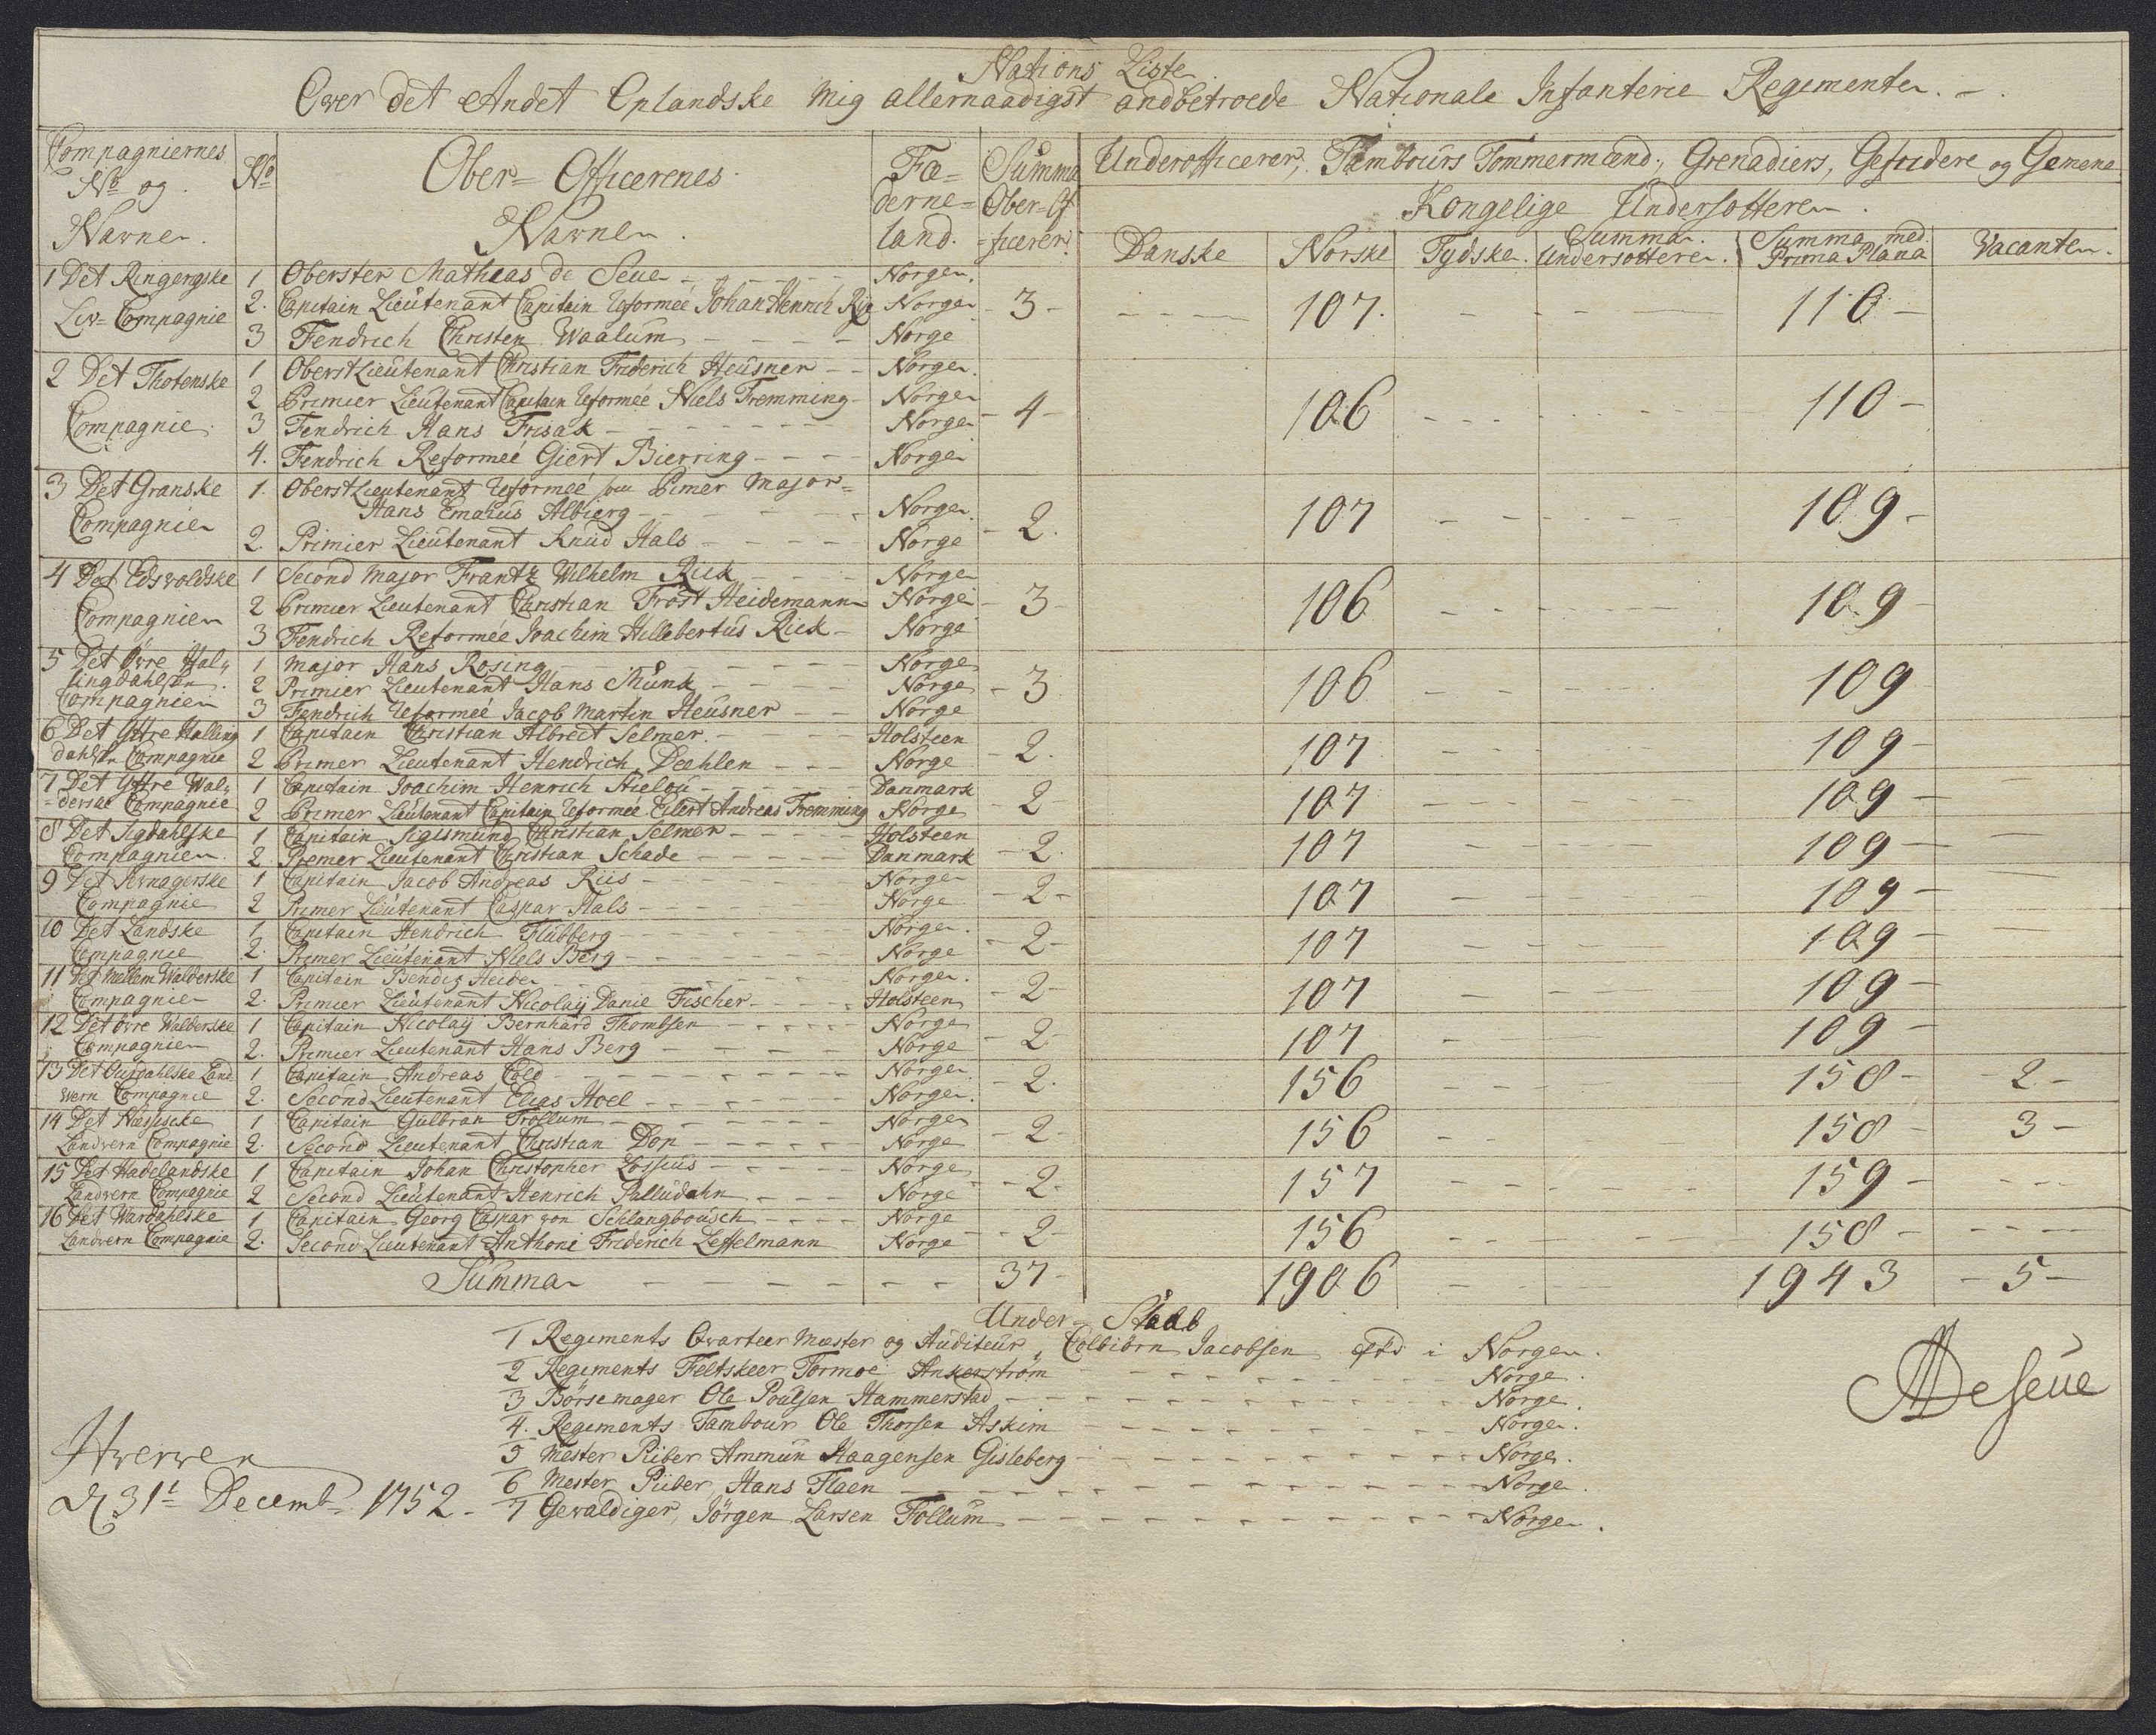 Nations Liste
Over det Andet Oplandske mig allernaadigst andbetroede Nationale Infanterie Regimente. -
Compagniernes No og Navne. | No | Ober= Officerenes Navne. | Fæ= derne= land. | Summa Ober=Of =ficerer. | Underofficerer, Tambours Tømmermænd, Grenadiers, Gefridere og Gemene
Kongelige Undersotterer.
Danske | Norske | Tydske. | Summa. Undersotterer. | Summa med Prima Plana | Vacante.
1 Det Ringergske Liv=Compagnie | 1 Oberster Mathias de Seue - - - Norge.
2. Capitain Lieutenant Capitain Reformeé Johan Henrich Rye Norge - 3 - | - - - | 107. | - | - - - | 110 -
3 Fendrich Christen Waalum - - - - Norge
2 Det Thotenske Compagnie. | 1 Oberst Lieutenant Christian Friderich Heusner - - Norge.
2 Premier Lieutenant Capitain Reformeé Niels Fremming - Norge
3 Fendrich Hans Frisak - - - - - - Norge - 4 - | 106 | - - - | - - - | 110 -
4. Fendrich Reformeé Giert Bierring - - - Norge
3 Det Granske Compagnie | 1. Oberst Lieutenant Reformeé som Primer Major=
Hans Emahus Albierg - - - - Norge.
2. Primier Lieutenant Knud Hals - - - - Norge - 2. | 107 | - - - | 109 -
4 Det Edsvoldske Compagnie | 1 Second Major Frantz Wilhelm Rick - - - Norge
2 Premier Lieutenant Christian Frost Heidemann Norge - 3 - | 106 | - - - | 109 -
3 Fendrich Reformeé Joachim Hillebertus Rick - Norge
5 Det Øvre Hal= lingdahlske Compagnie | 1 Major Hans Rosing - - - - - Norge
2 Primier Lieutenant Hans Munk - - - - Norge - 3 | 106 | - - - | 109
3 Fendrich Reformeé Jacob Martin Heusner - - Norge
6 Det Ÿttre Halling dahlske Compagnie | 1 Capitain Christian Albrect Selmer. - - - Holsteen
2 Primer Lieutenant Hendrich Deehlen - - - Norge - 2. | 107 | - - - | 109 -
7 Det Ÿttre Wal= =derske Compagnie | 1 Capitain Joachim Henrich Hielou - - - Danmark
2 Primer Lieutenant Capitain Reformeé Eilert Andreas Fremming Norge - 2 | 107 | - - - | 109 - | -
8 Det Sigdahlske Compagnie. | 1 Capitain Sigismund Christian Selmer - - - Holsteen
2. Premer Lieutenant Christian Schade - - - - Danmark - 2. | 107 | - - - | 109 - | -
9 Det Jevnagerske Compagnie | 1 Capitain Jacob Andreas Riis - - - - Norge
2 Primer Lieutenant Caspar Hals - - - - Norge - 2 - | 107 | - - - | 109 - | -
10 Det Landske Compagnie | 1 Capitain Hendrich Flubberg - - - - Norge.
2. Primer Lieutenant Niels Berg - - - - Norge - 2 - | 107 | - - - | 109 - | -
11 Det Mellem Walderske Compagnie | 1 Capitain Bendix Heide - - - - Norge.
2. Primier Lieutenant Nicolaÿ Danie Fischer - - - Holsteen - 2 - | 107 | - - - | 109 -
12 Det Øvre Walderske Compagnie | 1 Capitain Nicolaÿ Bernhard Thombsen - - - - Norge
2. Primier Lieutenant Hans Berg - - - - Norge - 2. | 107 | - - - | 109 -
13 Det Aurdahlske Land wern Compagnie | 1 Capitain Andreas Cold - - - - Norge
2. Second Lieutenant Elias Hoel - - - - Norge. - 2. | 156 | - - - | 158 - | - 2 -
14 Det Næssiscke Landvern Compagnie | 1 Capitain Gulbran Trollum - - - - Norge
2. Second Lieutenant Christian Dop - - - - Norge - 2 - | 156 | - - - | 158 - | 3 -
15 Det Hadelandske Landvern Compagnie | 1 Capitain Johan Christopher Lossius - - - - Norge
2 Second Lieutenant Henrich Palludahn - - - Norge - 2 - | 157 | - - - | 159 - | - - -
16 Det Wardahlske Landvern Compagnie | 1 Capitain Georg Caspar von Schlangbousch - - - - Norge
2. Second Lieutenant Anthoni Friderich Leffelmann Norge - 2 - | 156 | - - - | 158 - | - - -
Summa - - - - - - | 37 - | 1906 | - | - - | 1943 | - 5 -
Under= Staab
1 Regiments Qvarteer Mæster og Auditeur, Colbiørn Jacobsen fød i Norge.
2 Regiments Feltskeer Tormoe Ankerstrøm - - - - Norge.
3 Børsemager Ole Poulsen Hammerstad - - - - Norge.
4. Regiments Tambour Ole Thorsen Askim - - - - Norge.
5 Mester Piiber Ammun Haagensen Gisleberg - - - - Norge.
6 Mester Piiber, Hans Flaen - - - - Norge.
7 Gewaldiger, Jørgen Larsen Follum - - - - Norge.
Hverven
d 31t Decembr 1752 -
MDeseue